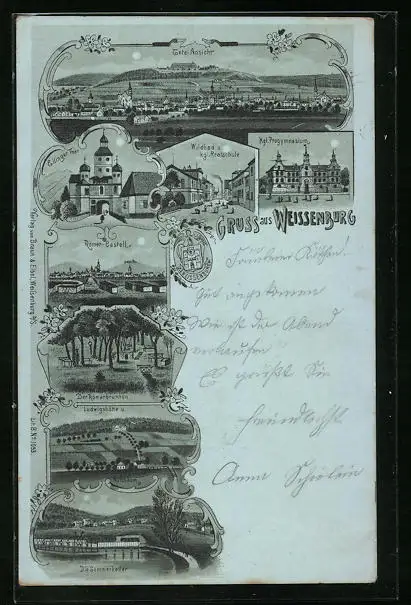 Total-Ansicht
Ellinger Thor
Wildbad u.
kgl. Realschule
Kgl. Progymnasium
Gruss aus Weissenburg
Römer-Castell
Der Römerbrunnen
Ludwigshöhe u.
Die Sommerkeller
Verlag von Braun & Elbel, Weißenburg a/S.
Gut angekommen
Wie ist der Abend
verlaufen
Es grüßt Sie
freundlichst
Anna